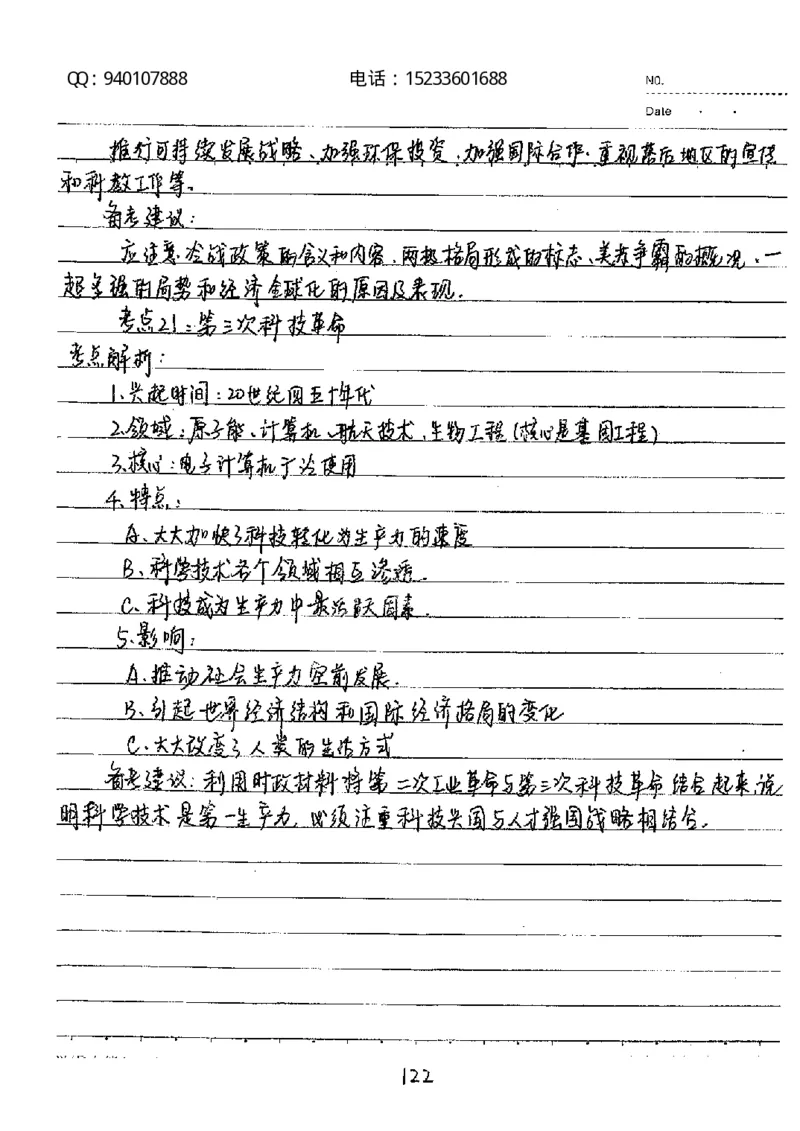 QQ：940107888 电话：15233601688 NO.
Date
推行可持续发展战略、加强环保投资、加强国际合作、重视落后地区的宣传
和科教工作等。
备考建议：
应注意冷战政策的含义和内容、两极格局形成的标志、美苏争霸的概况、一
超多强的局势和经济全球化的原因及表现.
考点21：第三次科技革命
考点解析：
1.兴起时间：20世纪四五十年代
2.领域：原子能、计算机、航天技术、生物工程(核心是基因工程)
3.核心：电子计算机广泛使用
4.特点：
A、大大加快了科技转化为生产力的速度
B、科学技术各个领域相互渗透.
C、科技成为生产力中最活跃因素.
5.影响：
A.推动社会生产力空前发展.
B、引起世界经济结构和国际经济格局的变化
C、大大改变了人类的生活方式
备考建议：利用时政材料将第二次工业革命与第三次科技革命结合起来,说
明科学技术是第一生产力,必须注重科技兴国与人才强国战略相结合.
122